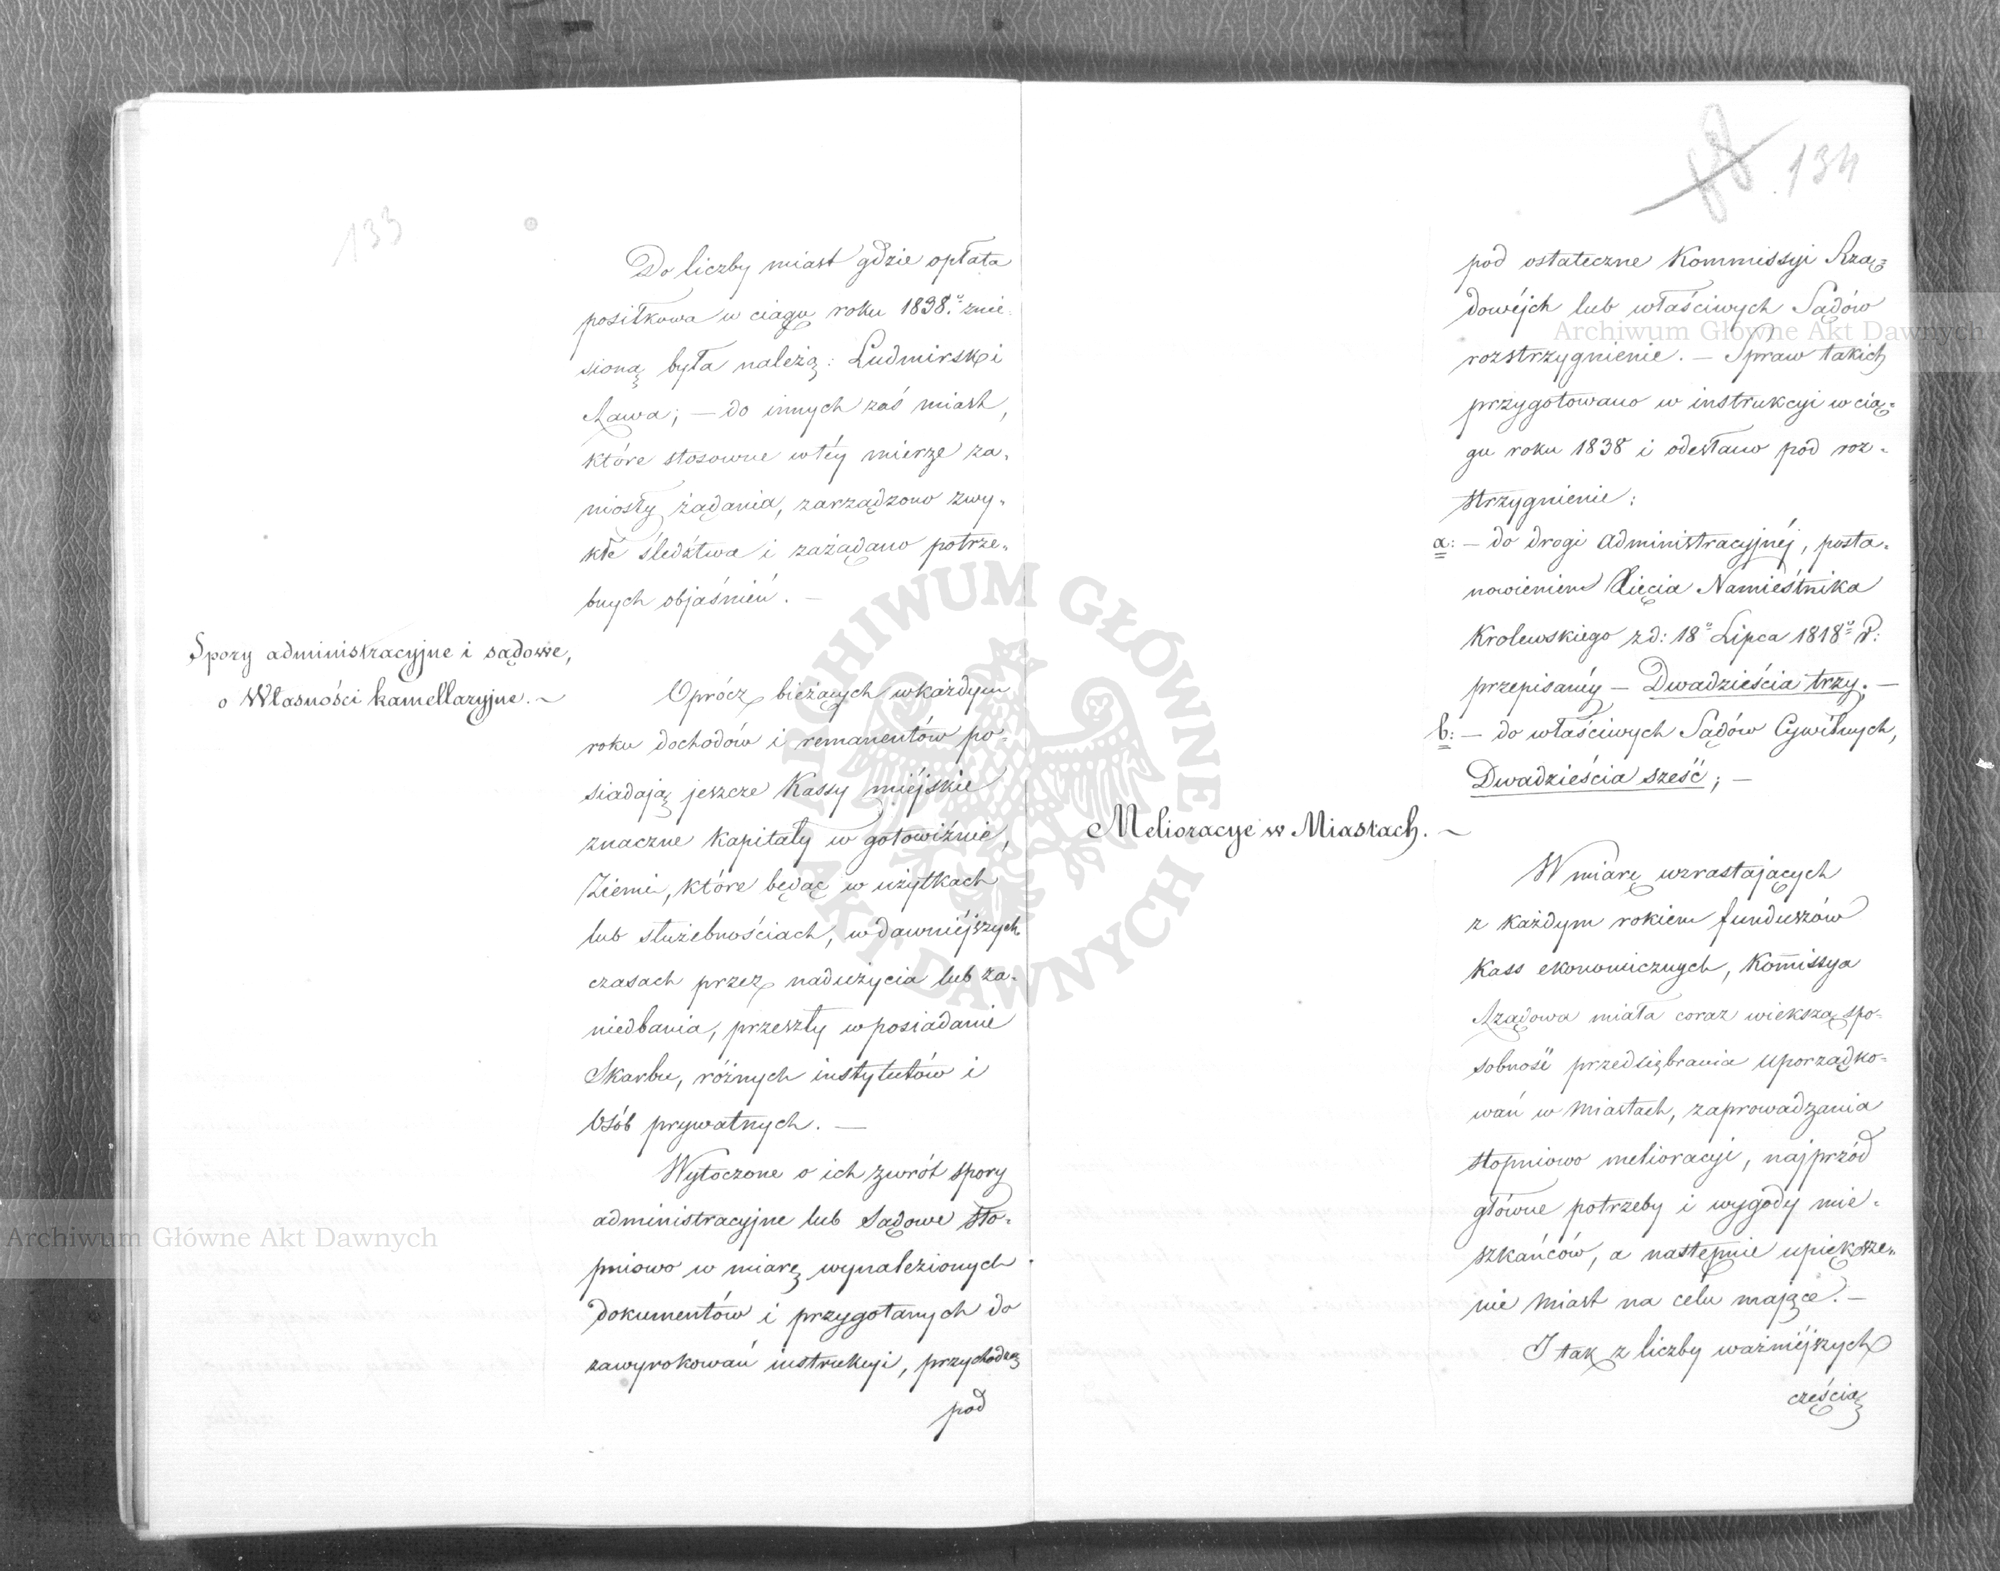 133
Do liczby miast gdzie opłata
posiłkowa w ciągu roku 1838.º znie=
sioną była należą: Ludmirsk i
Rawa; — do innych zaś miast,
które stosowne w téy mierze za=
niosły żądania, zarządzono zwy=
kłe śledztwa i zażądano potrze=
bnych objaśnień. —
Spory administracyjne i sądowe,
o Własności kamellaryjne. —
Oprócz bieżących w każdym
roku dochodów i remanentów po=
siadają jeszcze Kassy miéjskie
znaczne kapitały w gotowiźnie,
Ziemi, które będąc w użytkach
lub służebnościach, w dawniéjszych
czasach przez nadużycia lub za=
niedbania, przeszły w posiadanie
Skarbu, różnych instytutów i
Osób prywatnych. —
Wytoczone o ich zwrót spory
administracyjne lub Sądowe sto=
pniowo w miarę wynalezionych
dokumentów i przygotanych do
zawyrokowań instrukcyi, przychodzą
pod
134
pod ostateczne Kommissyi Rzą=
dowéjch lub właściwych Sądów
rozstrzygnienie. — Spraw takich
przygotowano w instrukcyi w cią=
gu roku 1838 i odesłano pod roz=
strzygnienie:
a: — do drogi administracyjnéj, posta=
nowieniem Xięcia Namiestnika
Krolewskiego z d: 18º Lipca 1818º r:
przepisanéy — Dwadzieścia trzy; —
b: — do właściwych Sądów Cywilnych,
Dwadzieścia sześć; —
Melioracye w Miastach. —
W miarę wzrastających
z każdym rokiem funduszów
Kass ekonomicznych, Kom̄issya
Rządowa miała coraz większą spo=
sobność przedsiębrania uporządko=
wań w Miastach, zaprowadzania
stopniowo melioracyi, najprzód
główne potrzeby i wygody mie=
szkańców, a następnie upiększe=
nie Miast na celu mające. —
I tak z liczby ważniéjszych
częścią
Archiwum Główne Akt Dawnych
Archiwum Główne Akt Dawnych
ARCHIWUM GŁÓWNE
AKT DAWNYCH